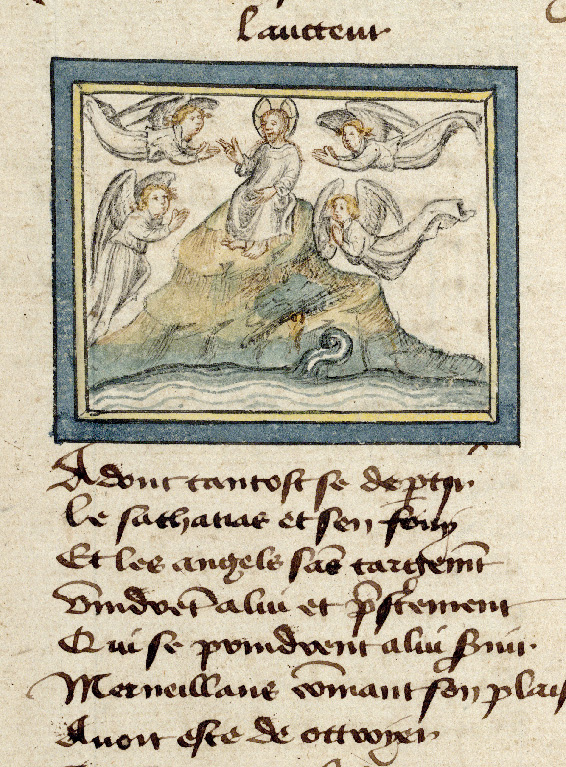 Laucteur
Adont tantost se deptir
Le sathanas et sen fouy
Et les angels sās targemt̄
Vīndrēt a lui et pr̄stement
Qui se prindrent a lui s̄uir
Merueillans cōmant son plais
Auoit este de ottroyer